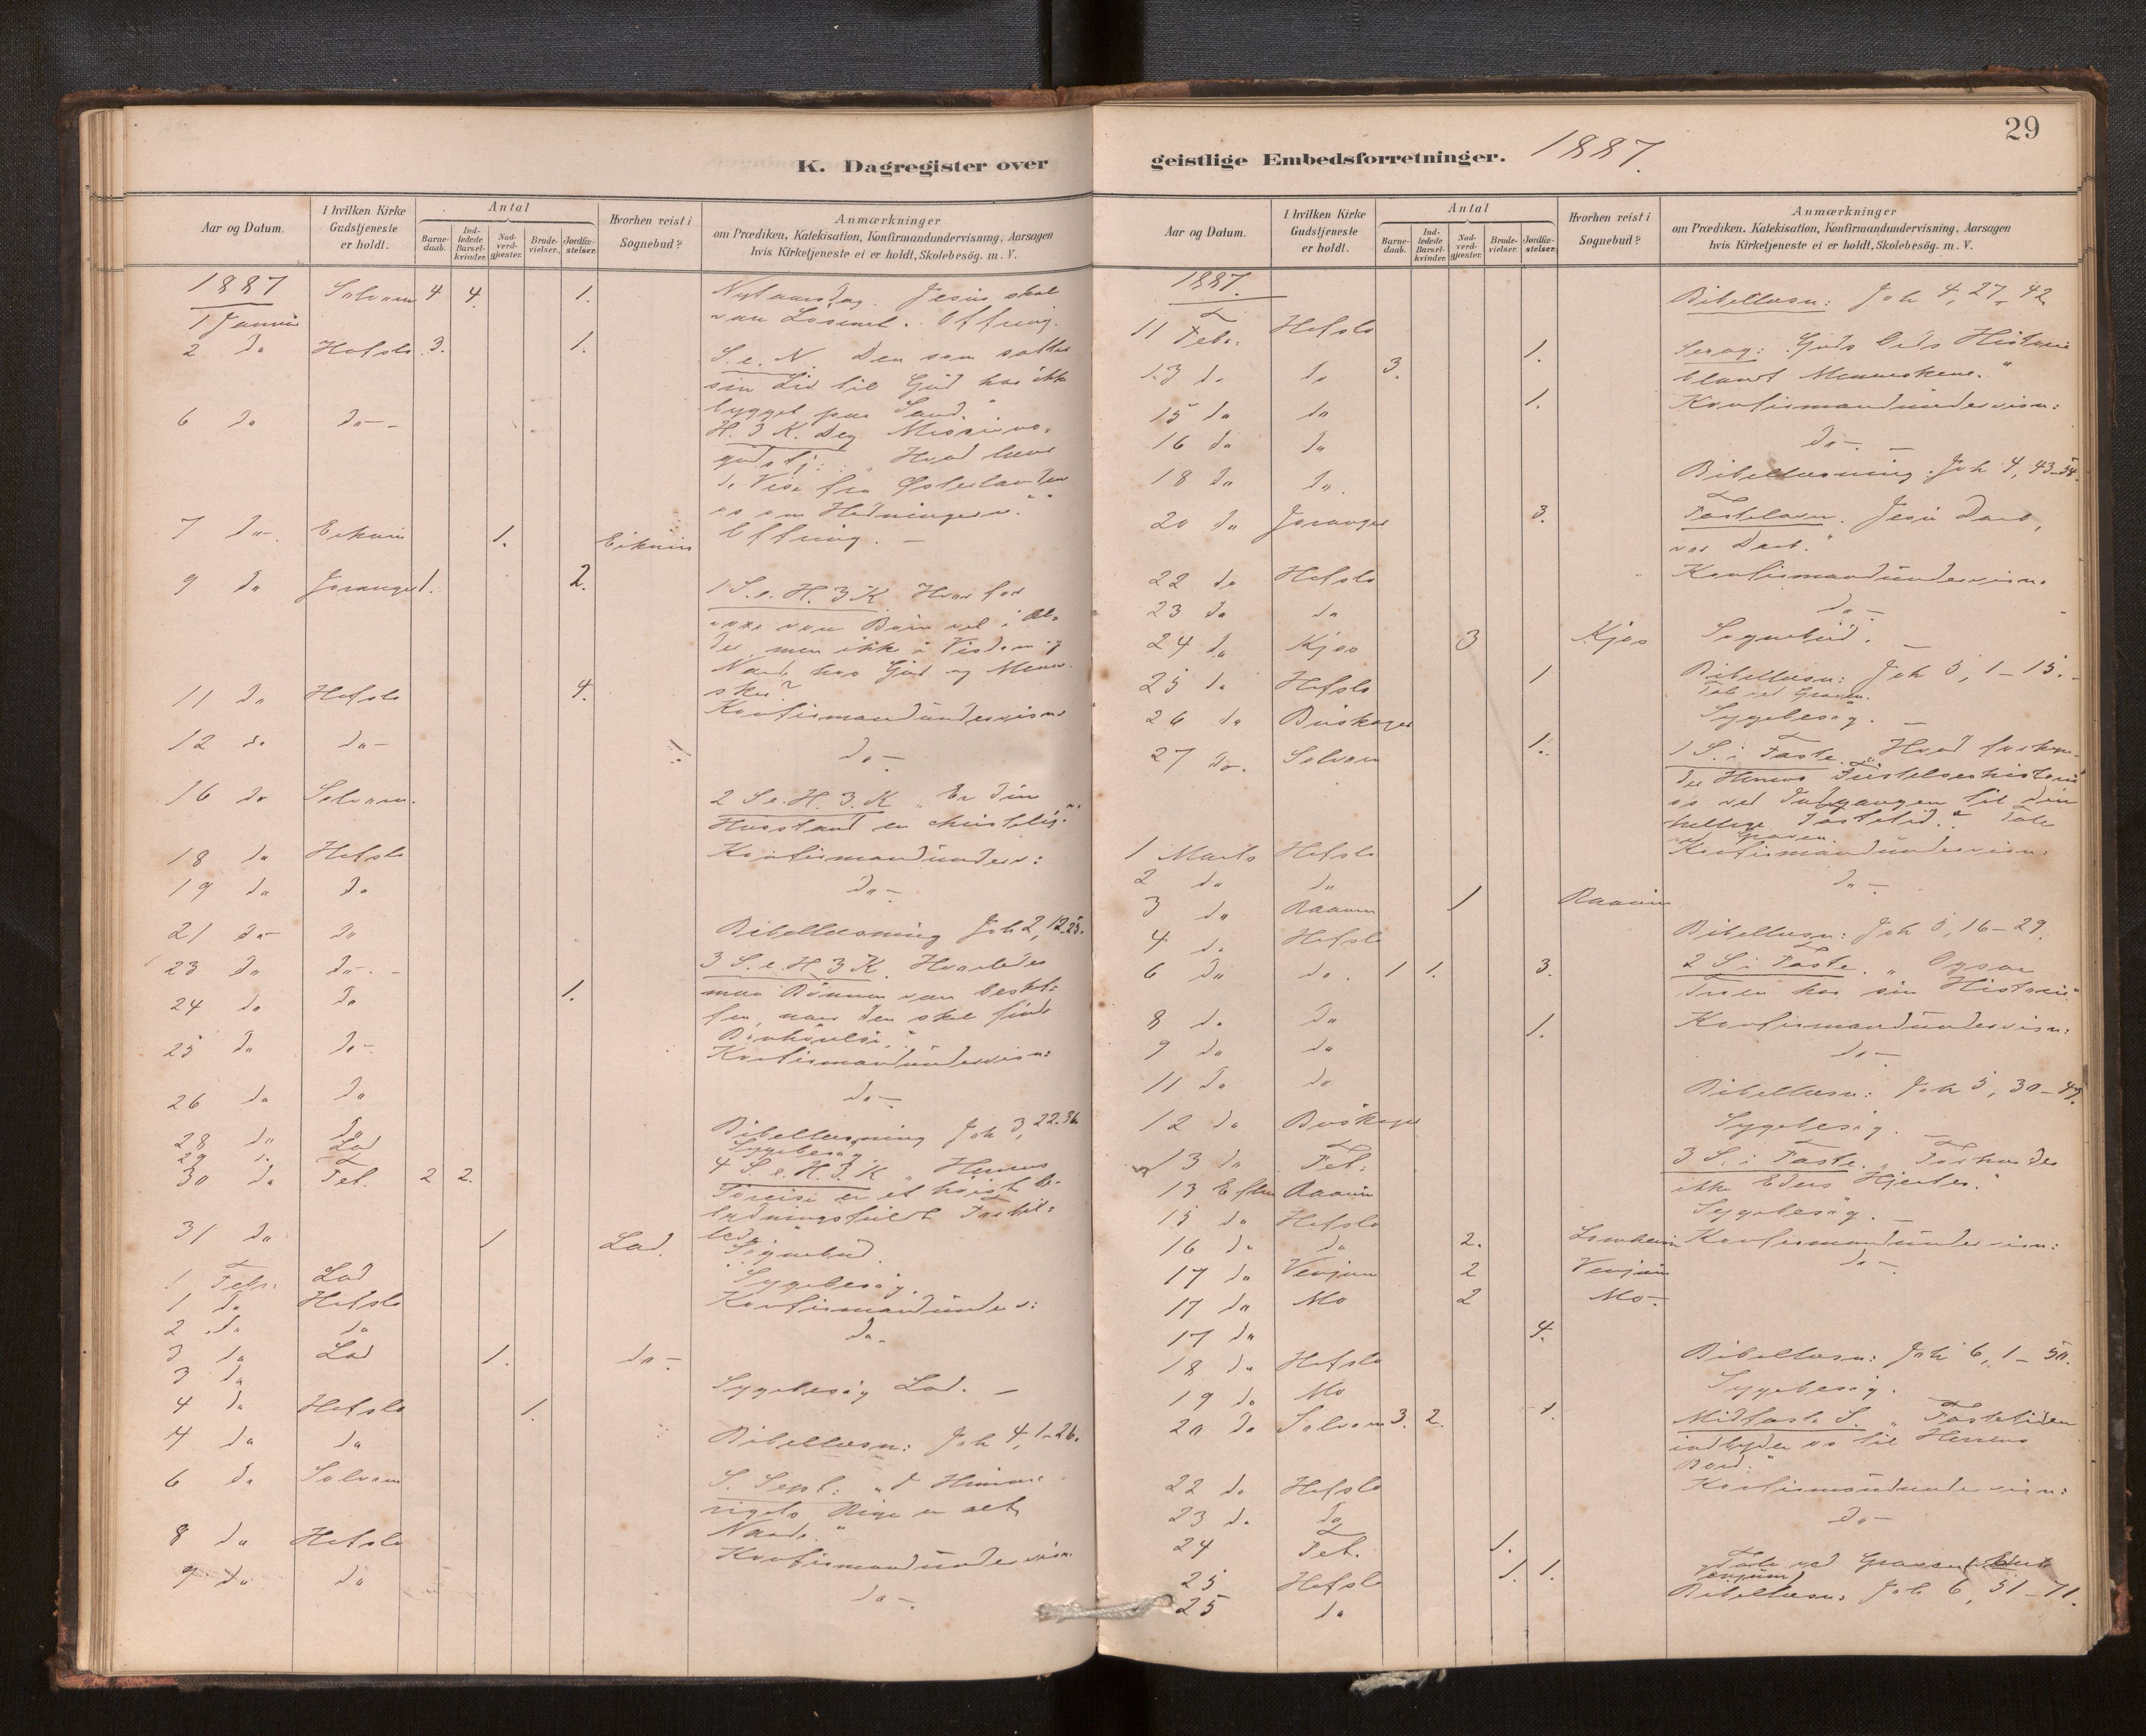 K. Dagregister over
Aar og Datum.
I hvilken Kirke Gudstjeneste er holdt.
Antal
Barne-daab.
Ind-ledede Barsel-kvinder.
Nad-verd-gjæster.
Brude-vielser.
Jordfæ-stelser.
Hvorhen reist i Sognebud?
Anmærkninger
om Prædiken, Katekisation, Konfirmandundervisning, Aarsagen
hvis Kirketjeneste ei er holdt, Skolebesög. m. V.
1887
1 Januar Solvorn 4 4. 1. Nytaarsdag. Jesus skal
være Løsenet. Offring.
2 do Hafslo 3. 1. S. e. N. Den som sætter
sin Lid til Gud har ikke
bygget paa Sand."
6 do do - H. 3 K. Dag Missions-
gudstj: "Hvad lære
de Vise fra Østerlanden
os om Hedningerne."
Offring. -
7 do - 1.
9 do Joranger 1. 2. 1 S. e. H. 3 K. Hvorfor
voxe vore Børn vel i Al-
der, men ikke i Visdom og
Naade hos Gud og Menne-
sker?
11 do Hafslo 4. Konfirmandundervisn:
12 do do - do -
16 do Solvorn. 2 S. e. H. 3. K. "Er din
Husstand en christelig?"
18 do Hafslo Konfirmandunderv:
19 do do do -
21 do - do Bibellæsning Joh 2, 12-25.
23 do do - - 3 S. e. H 3 K. Hvorledes
maa Bønnen være beskaf-
fen, naar den skal finde
Bønhørelse."
24 do do 1.
25 do do - Konfirmandundervisn:
26 do do do -
28 do do Bibellæsning Joh 3, 22-36
29 do Lad Sygebesøg
30 do Fet. 2 2. 4 S. e. H. 3 K "Herrens
er et høist be-
tydningsfuldt
31 do 1 Lad. Sognebud.
1 Febr: Lad Sygebesøg.
1 do Hafslo Konfirmandunderv:
2 do do do -
3 do Lad 1. do -
3 do Sygebesøg Lad. -
4 do Hafslo 1.
4 do do Bibellæsn: Joh 4, 1-26.
6 do Solvorn S. Sept: "I Himme-
rigets Rige er alt
Naade."
8 do Hafslo Konfirmandundervisn.
9 do do do -
geistlige Embedsforretninger. 1887.
29
Aar og Datum.
I hvilken Kirke Gudstjeneste er holdt.
Antal
Barne-daab.
Ind-ledede Barsel-kvinder.
Nad-verd-gjæster.
Brude-vielser.
Jordfæ-stelser.
Hvorhen reist i Sognebud?
Anmærkninger
om Prædiken, Katekisation, Konfirmandundervisning, Aarsagen
hvis Kirketjeneste ei er holdt, Skolebesög. m. V.
1887.
11 Febr. Hafslo Bibellæsn: Joh 4, 27-42
13 do do 3. 1. Sexag: Guds Ords Historie
blandt Menneskene."
15 do do 1. Konfirmandundervisn:
16 do do do -
18 do do. Bibellæsning: Joh 4, 43-54.
20 do Joranger 3. Fastelavn. Jesu Daab,
vor Daab."
22 do Hafslo Konfirmandundervisn.
23 do do do -
24 do Kjos 3 Kjos Sognebud. -
25 do Hafslo 1 Bibellæsn: Joh 5, 1-15. -
Tale ved Graven.
26 do Sygebesøg. -
27 do. Solvorn 1. 1 S. i Faste. "Hvad forkyn-
der Herrens Fristelseshistorie
os ved Indgangen til den
hellige Fastetid." Tale
ved Graven.
1 Marts Hafslo Konfirmandundervisn:
2 do do do -
3 do 1
4 do Hafslo Bibellæsn: Joh 5, 16-29.
6 do do. 1 1. 3. 2 S. i Faste. "Ogsaa
Troen har sin Historie."
8 do do 1. Konfirmandundervisn:
9 do do do -
11 do do Bibellæsn: Joh 5, 30-47.
12 do Sygebesøg. -
13 do Fet. 3 S. i Faste. "Forhærder
ikke Eders Hjerter."
13 Eftm Sygebesøg. -
15 do Hafslo Konfirmandundervisn:
16 do do 2. do -
17 do Venjum 2 Venjum
17 do Mo 2 Mo -
17 do 4.
18 do Hafslo Bibellæsn: Joh 6, 1-50.
19 do Mo Sygebesøg.
20 do Solvorn 3. 2. 1. Midfaste S. "Fastetiden
indbyder os til Herrens
Bord."
22 do Hafslo Konfirmandundervisn:
23 do do do -
24 Fet. 1.
25 Hafslo 1. 1. Tale ved Graven
25 do Bibellæsn: Joh 6, 51-71.